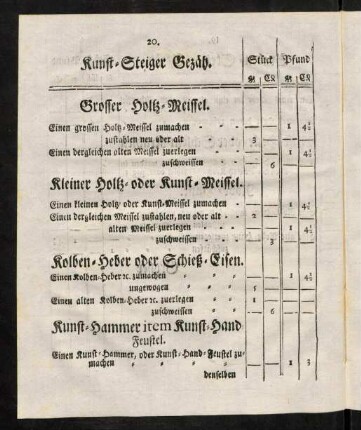 20.
Kunst-Steiger Gezäh. Stück Pfund
Grosser Holtz-Meissel.
Einen grossen Holtz-Meissel zumachen - - - 1 4½
zustahlen neu oder alt - - 3
Einen dergleichen alten Meissel zuerlegen - 1 4½
zuschweissen - 6
Kleiner Holtz-oder Kunst-Meissel.
Einen kleinen Holtz-oder Kunst-Meissel zumachen - 1 4½
Einen dergleichen Meissel zustahlen, neu oder alt - 2
alten Meissel zuerlegen - - 1 4½
zuschweissen - - 3
Kolben-Heber oder Schieß-Eisen.
Einen Kolben-Heber ꝛc. zumachen 1 4½
ungewogen 5
Einen alten Kolben-Heber ꝛc. zuerlegen 1
zuschweissen 6
Kunst-Hammer item Kunst-Hand
Feustel.
Einen Kunst-Hammer, oder Kunst-Hand-Feustel zu-
machen 1 3
denselben